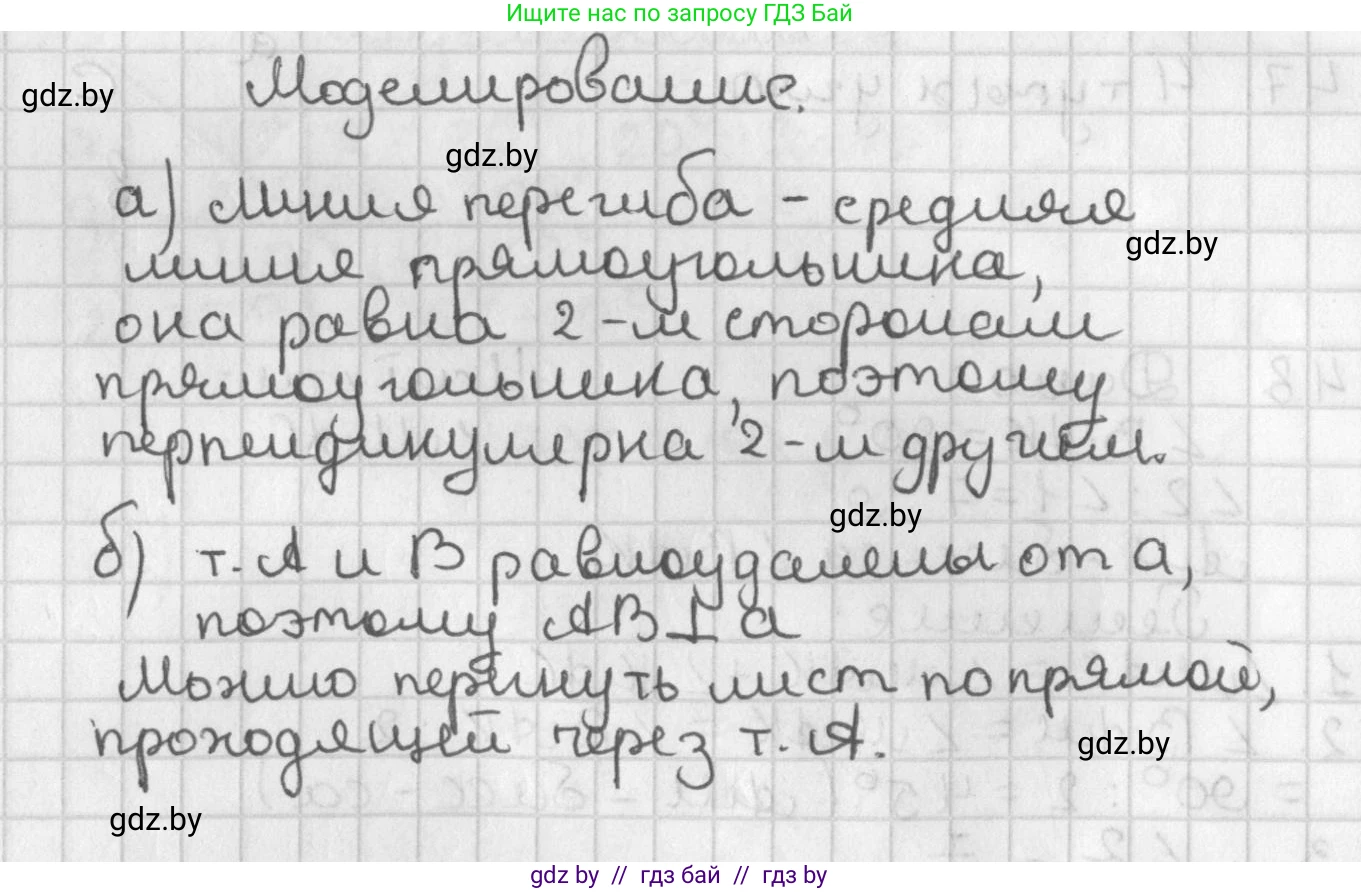 Ищите нас по запросу ГДЗ Бай
Моделирование.
gdz.by
gdz.by
а) Линия перегиба - средняя
gdz.by
линия прямоугольника,
она равна 2-м сторонам
прямоугольника, поэтому
перпендикулярна 2-м другим.
gdz.by
б) т. А и В равноудалены от а,
поэтому АВ⊥а
Можно перегнуть лист по прямой,
проходящей через т. А.
gdz.by
gdz.by
gdz.by // гдз бай // гдз by